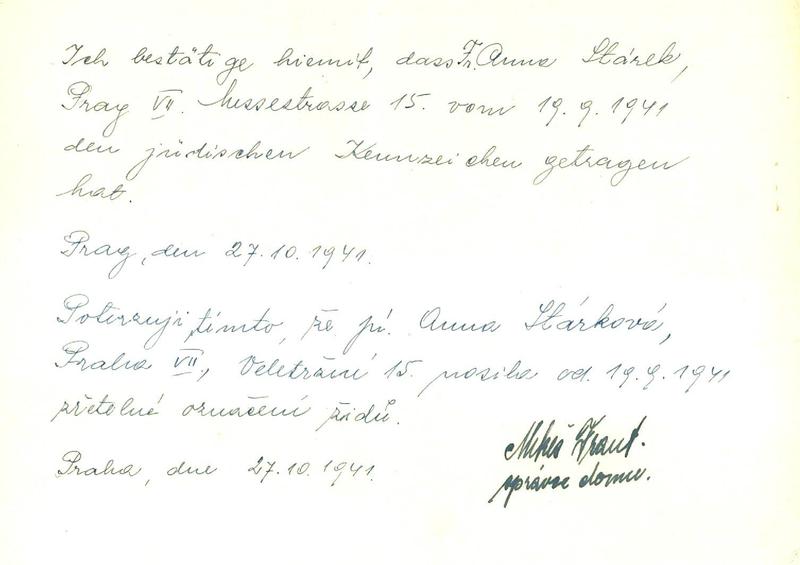 Ich bestätige hiemit, dass Fr. Anna Stárek,
Prag VII. Messestrasse 15. vom 19.9.1941
den jüdischen Kennzeichen getragen
hat.
Prag, den 27.10.1941.
Potvrzuji tímto, že pí. Anna Stárková,
Praha VII., Veletržní 15. nosila od 19.9.1941
zřetelné označení židů.
Praha, dne 27.10.1941.
Mikeš Frant.
správce domu.